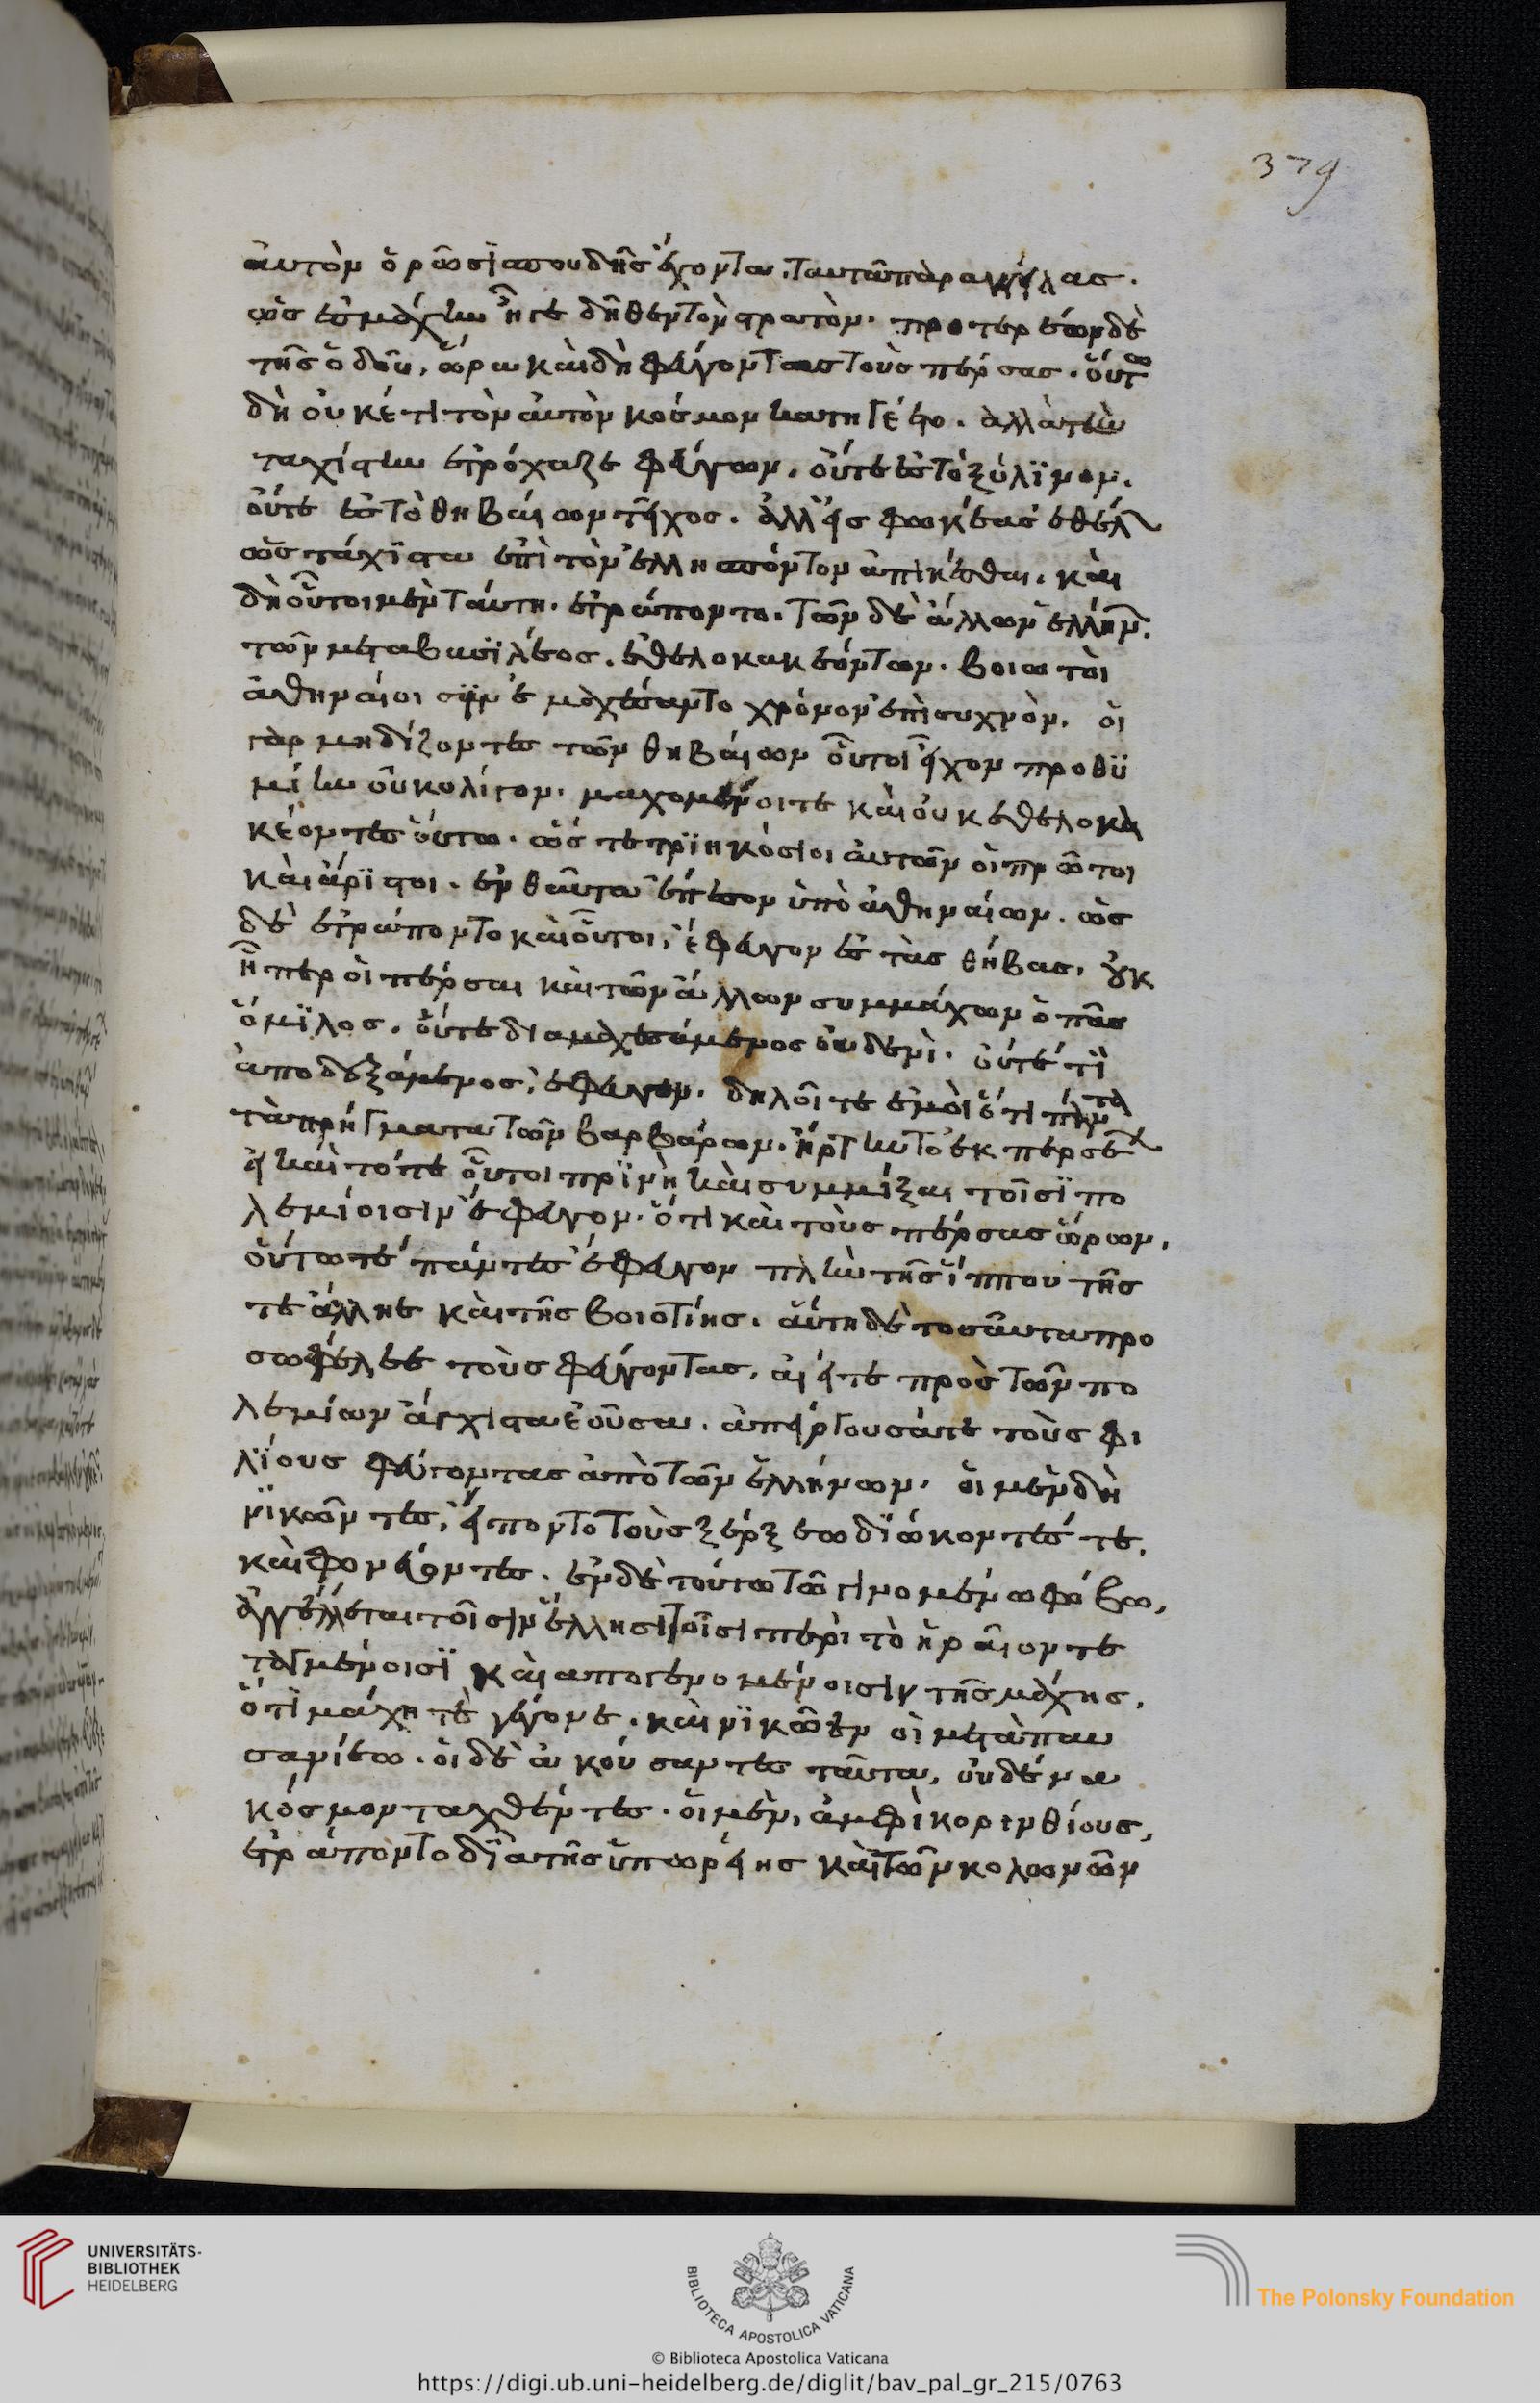 379
αὐτὸν ὁρῶσι σπουδῆς ἔχοντα. ταῦτα παραγγείλας.
ὡς ἐς μάχην ἦγε δῆθεν τὸν στρατόν. προτερέων δὲ
τῆς ὁδοῦ, ὥρα καὶ δὴ φεύγοντας τοὺς πέρσας. οὕτω
δὴ οὐκέτι τὸν αὐτὸν κόσμον κατηγέετο. ἀλλὰ τὴν
ταχίστην ἐτρόχαζε φεύγων. οὔτε ἐς τὸ ξύλινον.
οὔτε ἐς τὸ θηβαίων τεῖχος. ἀλλ' ἐς φωκέας ἐθέλων
ὡς τάχιστα ἐπὶ τὸν ἑλλήσποντον ἀπικέσθαι. καὶ
δὴ οὗτοι μὲν ταύτη. ἐτράποντο. τῶν δὲ ἄλλων ἑλλήνων.
τῶν μετὰ βασιλέος. ἐθελοκακεόντων. βοιωτοὶ
ἀθηναίοισιν ἐμαχέσαντο χρόνον ἐπὶ συχνὸν. οἱ
γὰρ μηδίζοντες τῶν θηβαίων οὗτοι εἶχον προθυ
μίην οὐκ ὀλίγον. μαχόμενοί τε καὶ οὐκ ἐθελοκα
κέοντες οὕτω. ὥς τε τριηκόσιοι αὐτῶν οἱ πρῶτοι
καὶ ἄριστοι. ἐνθαῦτα ἔπεσον ὑπὸ ἀθηναίων. ὡς
δὲ ἐτράποντο καὶ οὗτοι, ἔφευγον ἐς τὰς θήβας. οὐκ
ἧπερ οἱ πέρσαι καὶ τῶν ἄλλων συμμάχων ὁ πᾶς
ὅμιλος. οὔτε διαμαχεσάμενος οὐδενὶ. οὔτέ τι
ἀποδεξάμενος, ἔφευγον. δηλοῖ τε ἐμοὶ ὅτι πάντα
τὰ πρήγματα τῶν βαρβάρων. ἤρτηντο ἐκ περσέων
εἰ καὶ τότε οὗτοι πρὶν ἢ καὶ συμμίξαι τοῖσι πο
λεμίοισιν ἔφευγον. ὅτι καὶ τοὺς πέρσας ὥρων.
οὕτω τέ πάντες ἔφευγον πλὴν τῆς ἵππου τῆς
τε ἄλλης καὶ τῆς βοιοτίης. αὕτη δὲ τοσαῦτα προ
σωφέλεε τοὺς φεύγοντας. αἰεί τε πρὸς τῶν πο
λεμίων ἄγχιστα ἐοῦσα. ἀπείργουσά τε τοὺς φι
λίους φεύγοντας ἀπὸ τῶν ἑλλήνων. οἱ μὲν δὴ
νικῶντες, εἵποντο τοὺς ξέρξεω διώκοντές τε.
καὶ φονεύοντες. ἐν δὲ τούτω τῶ γινομένω φόβω,
ἀγγέλλεται τοῖσιν ἕλλησι τοῖσι περὶ τὸ ἥραιον τε
ταγμένοισι καὶ απογενομένοισιν τῆς μάχης.
ὅτι μάχη τὲ γέγονε. καὶ νικῶεν οἱ μετὰ παυ
σανίεω. οἱ δὲ ἀκούσαντες ταῦτα, οὐδένα
κόσμον ταχθέντες. οἱ μὲν, ἀμφὶ κορινθίους,
ἐτράποντο διὰ τῆς ὑπωρέης καὶ τῶν κολωνῶν
UNIVERSITÄTS-
BIBLIOTHEK
HEIDELBERG
BIBLIOTECA APOSTOLICA VATICANA
The Polonsky Foundation
© Biblioteca Apostolica Vaticana
https://digi.ub.uni-heidelberg.de/diglit/bav_pal_gr_215/0763